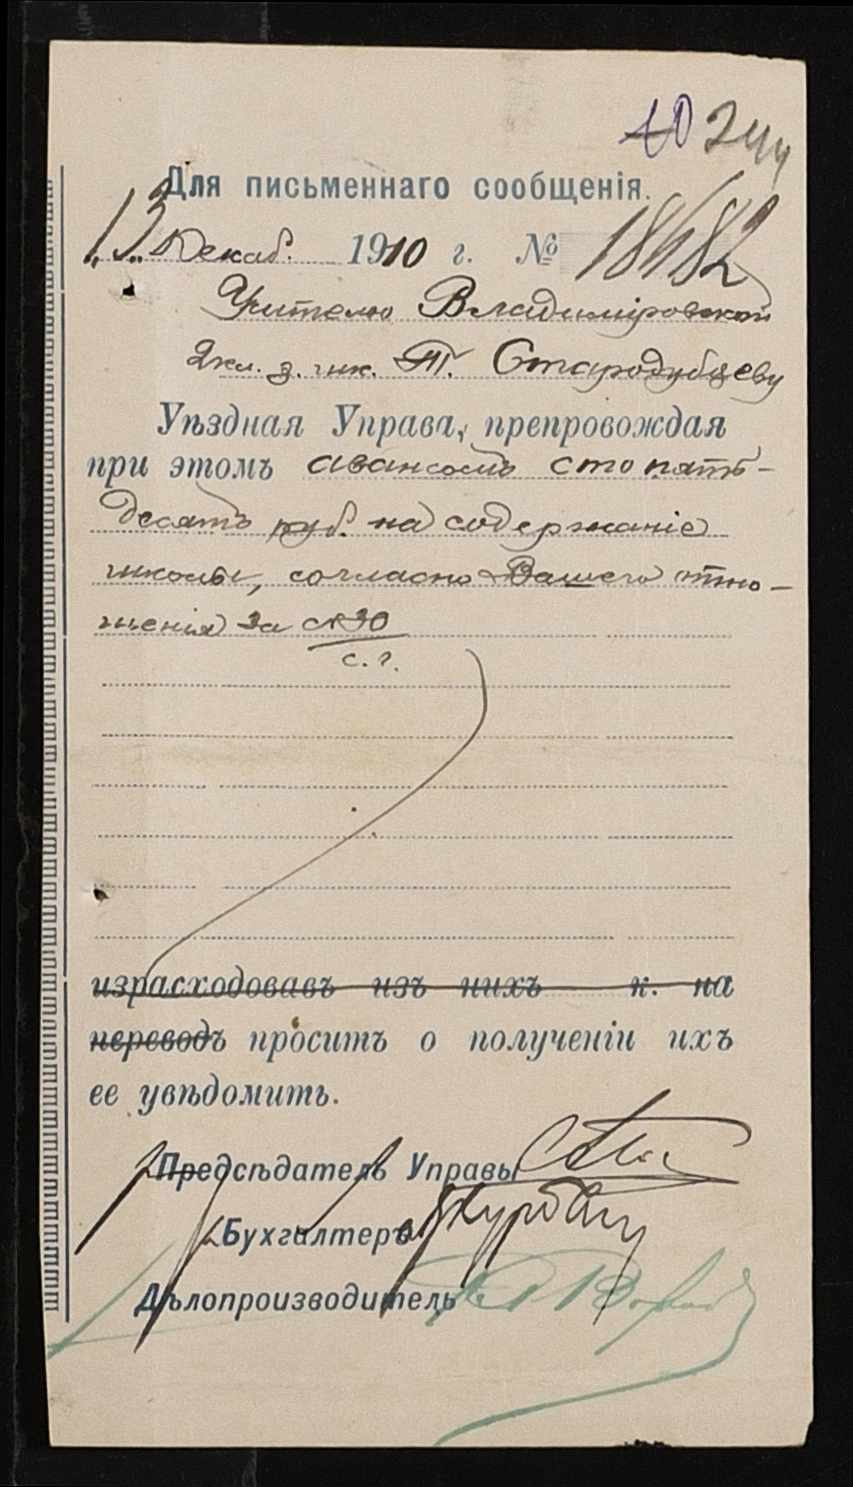 Для письменнаго сообщенія.
13 Декаб. 1910 г. № 18682
Учителю Владиміровской
2кл. з. шк. Т. Стародубцеву
Уѣздная Управа, препровождая
при этомъ авансомъ сто пять-
десятъ руб. на содержаніе
школы, согласно Вашего отно-
шенія за №30
с. г.
израсходовавъ изъ нихъ к. на
переводъ проситъ о полученіи ихъ
ее увѣдомить.
Предсѣдатель Управы
Бухгалтеръ
Дѣлопроизводитель